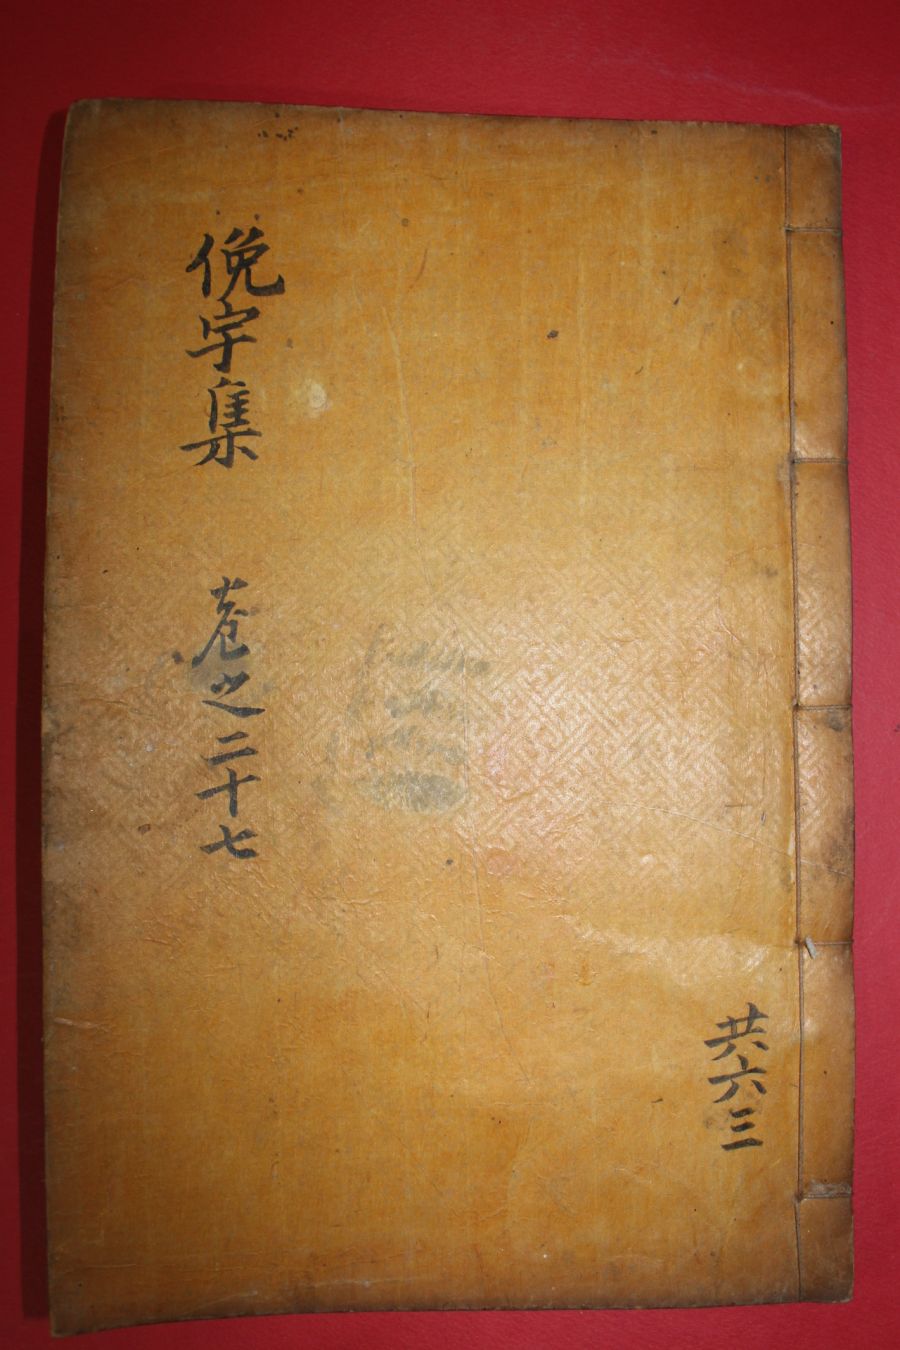 俛宇集 卷之二十七
共六三